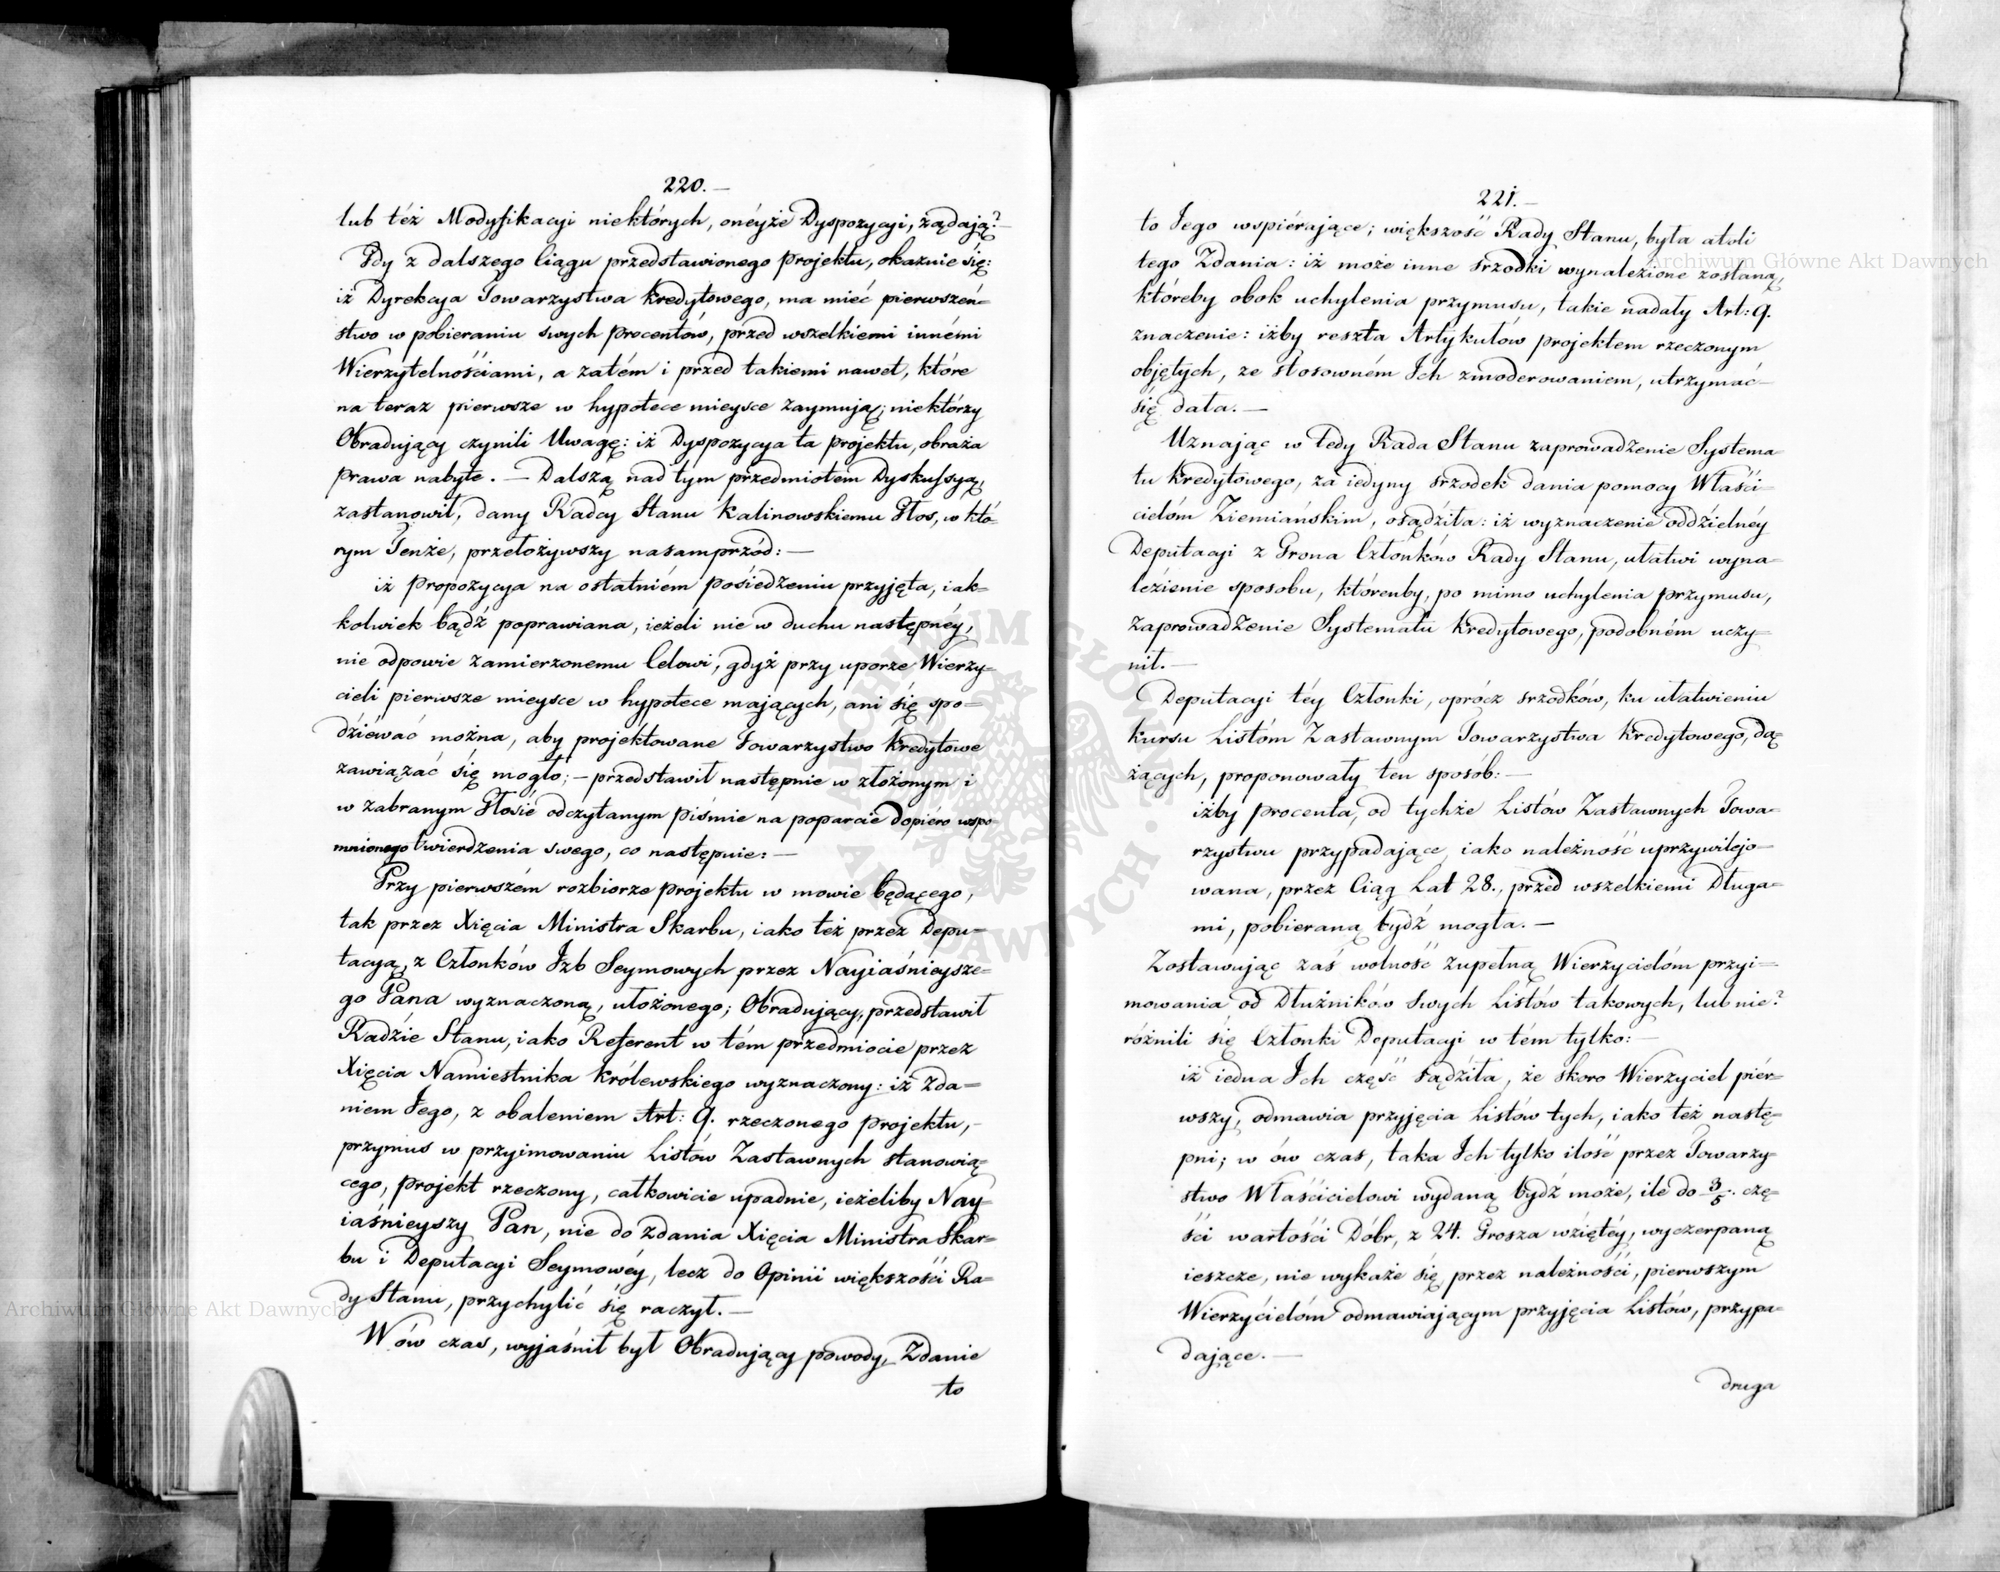 220.—
lub też Modyfikacyi niektórych, onéyże Dyspozycyi, żądają?—
Gdy z dalszego Ciągu przedstawionego projektu, okazuie się:
iż Dyrekcya Towarzystwa kredytowego, ma mieć pierwszeń=
stwo w pobieraniu swych procentów, przed wszelkiemi innémi
Wierzytelnościami, a zatém i przed takiemi nawet, które
na teraz pierwsze w hypotece mieysce zaymują; niektórzy
Obradujący czynili Uwagę: iż Dyspozycya ta projektu, obraża
prawa nabyte. — Dalszą nad tym przedmiotem Dyskussyą,
zastanowił, dany Radcy Stanu Kalinowskiemu Głos, w któ=
rym Tenże, przełożywszy nasamprzód: —
iż propozycya na ostatniém posiedzeniu przyjęta, iak=
kolwiek bądź poprawiana, ieżeli nie w duchu następnéy,
nie odpowie zamierzonemu Celowi, gdyż przy uporze Wierzy=
cieli pierwsze mieysce w hypotece mających, ani się spo=
dziéwać można, aby projektowane Towarzystwo Kredytowe
zawiązać się mogło; — przedstawił następnie w złożonym i
w zabranym Głosie odczytanym piśmie na poparcie dopiéro wspo
mnionego Twierdzenia swego, co następuie: —
Przy pierwszém rozbiorze projektu w mowie będącego,
tak przez Xięcia Ministra Skarbu, iako też przez Depu=
tacyą, z Członków Izb Seymowych przez Nayiaśnieysze=
go Pana wyznaczoną, ułożonego; Obradujący, przedstawił
Radzie Stanu, iako Referent w tém przedmiocie przez
Xięcia Namiestnika Królewskiego wyznaczony: iż zda=
niem Jego, z obaleniem Art: 9. rzeczonego projektu,–
przymus w przyimowaniu Listów Zastawnych stanowią=
cego, projekt rzeczony, całkowicie upadnie, ieżeliby Nay=
iaśnieyszy Pan, nie do zdania Xięcia Ministra Skar=
bu i Deputacyi Seymowéy, lecz do Opinii większości Ra=
dy Stanu, przychylić się raczył. —
W ów czas, wyjaśnił był Obradujący powody, Zdanie
to
221.—
to Jego wspiérające; większość Rady Stanu, była atoli
tego Zdania: iż może inne srzodki wynalezione zostaną,
któreby obok uchylenia przymusu, takie nadały Art: 9.
znaczenie: iżby reszta Artykułów projektem rzeczonym
objętych, ze stosowném Ich zmoderowaniem, utrzymać—
się dała. —
Uznając w tedy Rada Stanu zaprowadzenie Systema
tu Kredytowego, za iedyny srzodek dania pomocy Właści=
cielóm Ziemiańskim, osądziła: iż wyznaczenie oddzielnéy
Deputacyi z Grona Członków Rady Stanu, ułatwi wyna=
lezienie sposobu, którenby, po mimo uchylenia przymusu,
zaprowadzenie Systematu Kredytowego, podobném uczy=
nił. —
Deputacyi téy Członki, oprócz srzodków, ku ułatwieniu
kursu Listóm Zastawnym Towarzystwa Kredytowego, dą
żących, proponowały ten sposób: —
iżby procenta, od tychże Listów Zastawnych Towa=
rzystwu przypadające, iako należność uprzywilejo=
wana, przez Ciąg Lat 28., przed wszelkiemi Długa=
mi, pobieraną bydź mogła. —
Zostawując zaś wolność zupełną Wierzycielóm przyi=
mowania od Dłużników swych Listów takowych, lub nie?
różnili się Członki Deputacyi w tém tylko: —
iż iedna Ich część sądziła, że skoro Wierzyciel piér=
wszy, odmawia przyjęcia Listów tych, iako też nastę=
pni; w ów czas, taka Ich tylko ilość przez Towarzy=
stwo Właścicielowi wydaną bydź może, ile do 3/5. czę=
ści wartości Dóbr, z 24. Grosza wziętéy, wyczerpaną
ieszcze, nie wykaże się, przez należności, pierwszym
Wierzycielóm odmawiającym przyjęcia Listów, przypa=
dające. —
druga
Archiwum Główne Akt Dawnych
Archiwum Główne Akt Dawnych
ARCHIWUM GŁÓWNE AKT DAWNYCH